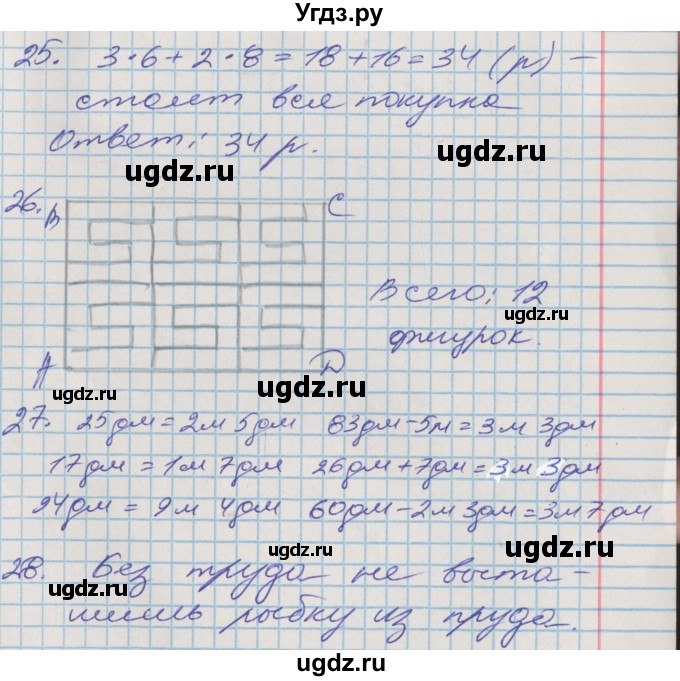 Угдз.ру
25. 3·6+2·8=18+16=34 (р) –
стоит вся покупка
Ответ: 34 р.
ugdz.ru ugdz.ru
26. B C
ugdz.ru ugdz.ru
Всего: 12
фигурок.
A D
ugdz.ru ugdz.ru
27. 25дм=2м 5дм 83дм-5м=3м 3дм
17дм=1м 7дм 26дм+7дм=3м 3дм
94дм=9м 4дм 60дм-2м 3дм=3м 7дм
ugdz.ru ugdz.ru
28. Без труда не выта-
щишь рыбку из пруда.
ugdz.ru ugdz.ru